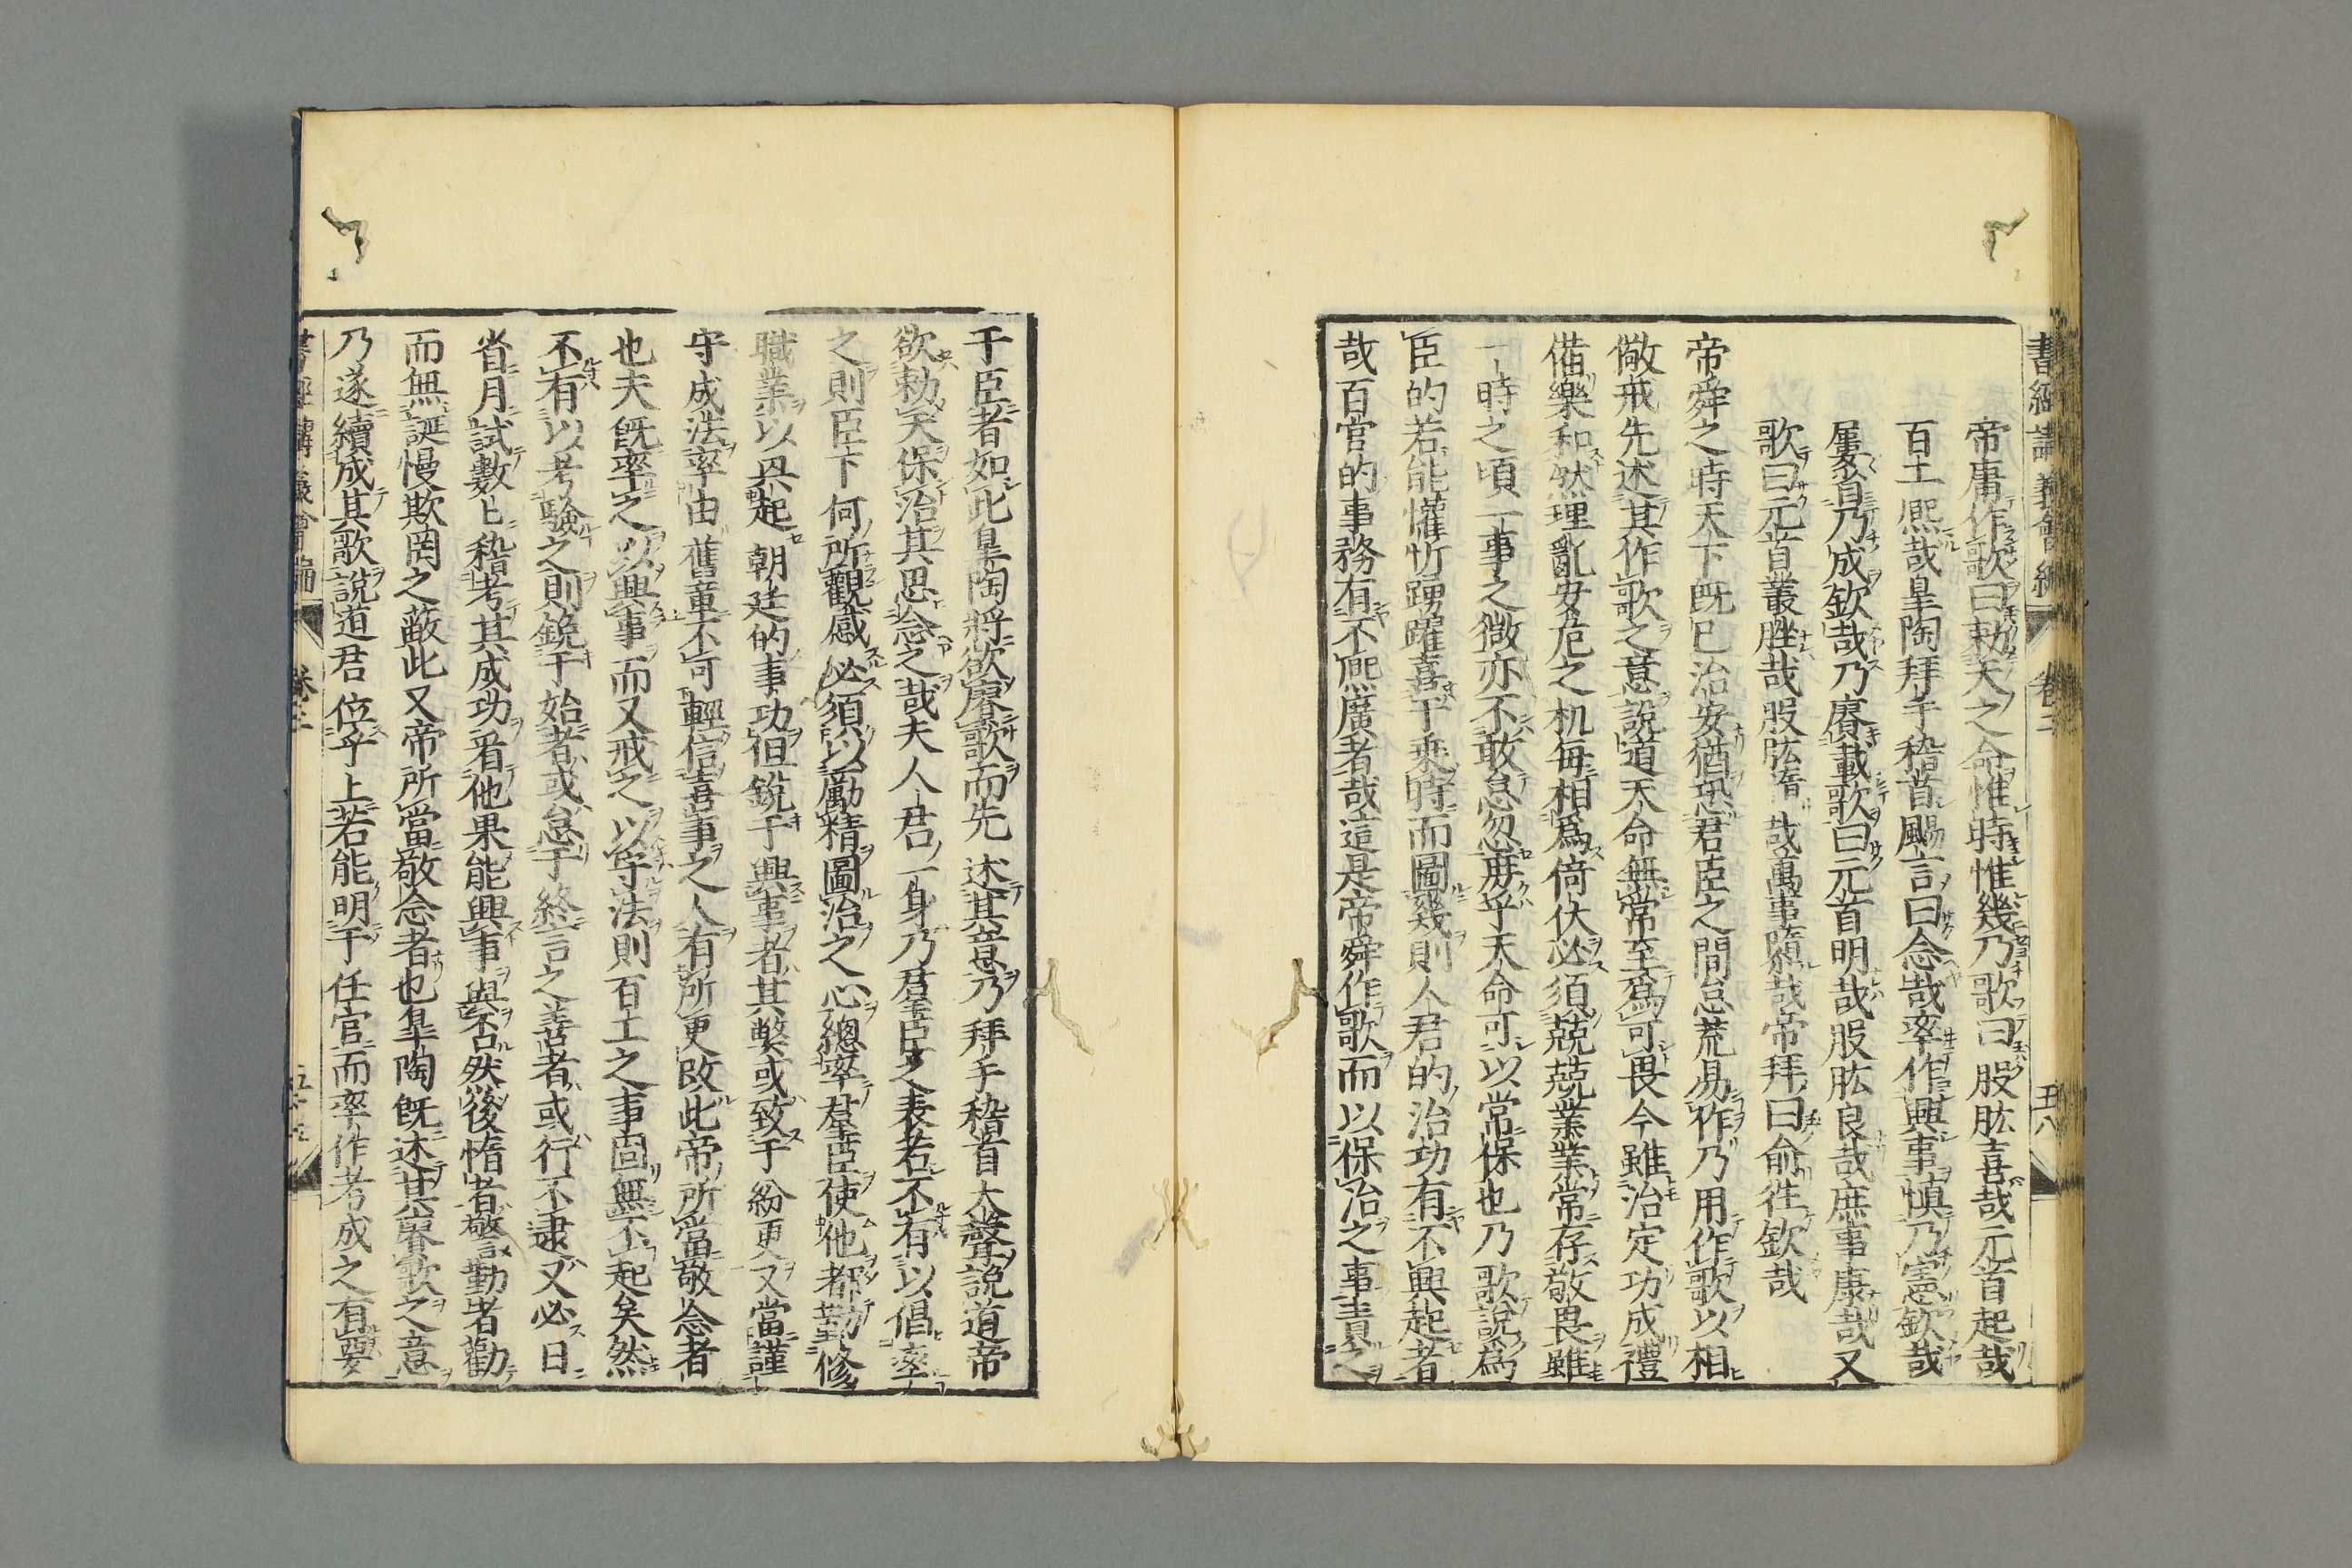 書經講義會編 卷三 五八
帝庸作歌曰勑天之命惟時惟幾乃歌曰股肱喜哉元首起哉
百工熈哉皐陶拜手稽首颺言曰念哉率作興事慎乃憲欽哉
屢省乃成欽哉乃賡載歌曰元首明哉股肱良哉庶事康哉又
歌曰元首叢脞哉股肱惰哉萬事隳哉帝拜曰俞徃欽哉
帝舜之時天下既已治安猶恐君臣之間怠荒易作乃用作歌以相
儆戒先述其作歌之意說道天命無常至爲可畏今雖治定功成禮
偹樂和然理亂安危之机每相爲倚伏必須兢兢業業常存敬畏雖
一時之頃一事之微亦不敢怠忽庻乎天命可以常保也乃歌說爲
臣的若能懽忻踴躍喜于乘時而圖幾則人君的治功有不興起者
哉百官的事務有不熈廣者哉這是帝舜作歌而以保治之事責之
于臣者如此皐陶將欲賡歌而先述其意乃拜手稽首大聲說道帝
欲勑天保治其思念之哉夫人君一身乃羣臣之表若不有以倡率
之則臣下何所觀感必須以勵精圖治之心總率羣臣使他都勤修
職業以興起朝廷的事功但銳于興事者其弊或致于紛更又當謹
守成法率由舊章不可輕信喜事之人有所更改此帝所當敬念者
也夫既率之以興事而又戒之以守法則百工之事固無不起矣然
不有以考驗之則銳于始者或怠于終言之善者或行不逮又必日
省月試數上稽考其成功看他果能興事與否然後惰者警勤者勸
而無誕慢欺罔之蔽此又帝所當敬念者也皐陶既述其賡歌之意
乃遂續成其歌說道君位乎上若能明于任官而率作考成之有要
書經講義會編 卷三